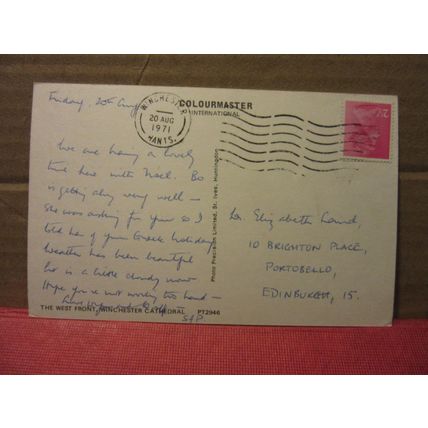 Friday, 20th Aug
WINCHESTER
20 AUG
1971
HANTS.
COLOURMASTER
INTERNATIONAL
2½
We are having a lovely
time here with Noel. Bo
is getting along very well –
She was asking for you so I
told her of your Greek holiday
Weather has been beautiful
but is a little cloudy now
Hope you're not working too hard –
Love
S&P.
Photo Precision Limited, St. Ives, Huntingdon
Dr. Elizabeth Lound,
10 BRIGHTON PLACE,
PORTOBELLO,
EDINBURGH, 15.
THE WEST FRONT, WINCHESTER CATHEDRAL PT2946